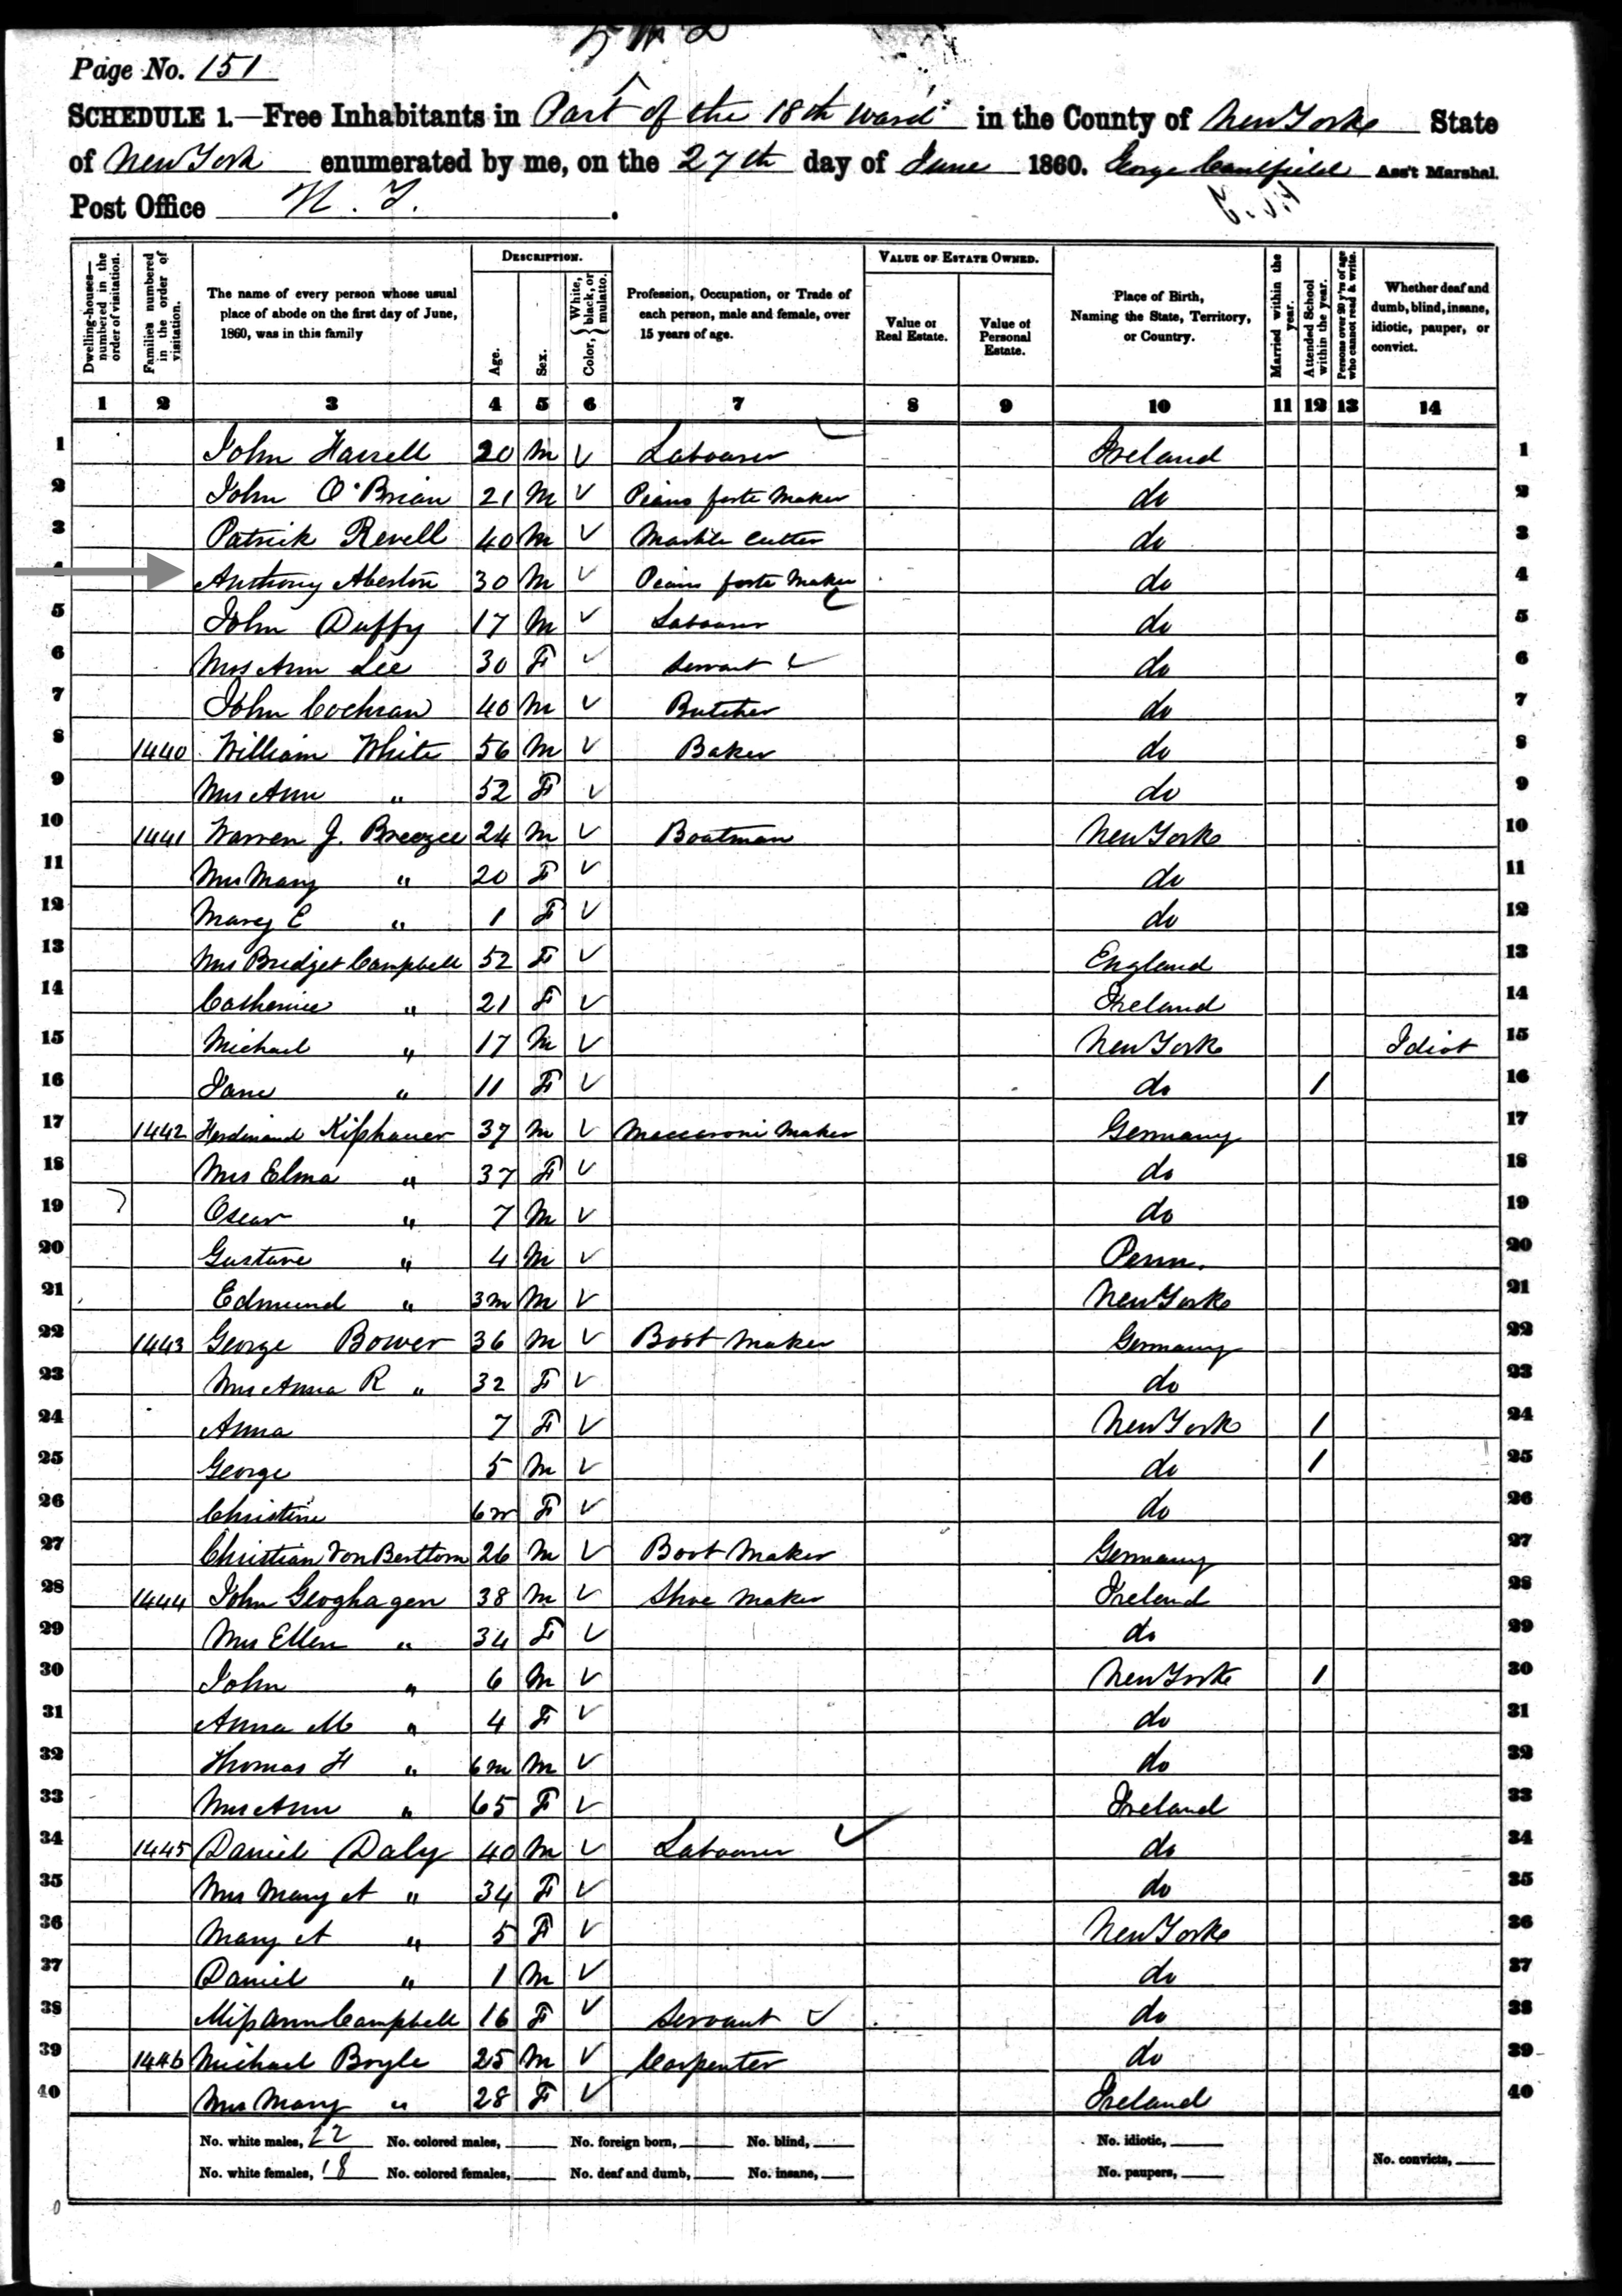 Page No. 151
SCHEDULE 1.—Free Inhabitants in Part of the 18th Ward in the County of New York State
of New York enumerated by me, on the 27th day of June 1860. George Caulfield Ass't Marshal.
Post Office N. Y.
Dwelling-houses—numbered in the order of visitation. Families numbered in the order of visitation. The name of every person whose usual place of abode on the first day of June, 1860, was in this family DESCRIPTION. Age. Sex. Color, {White, black, or mulatto. Profession, Occupation, or Trade of each person, male and female, over 15 years of age. VALUE OF ESTATE OWNED. Value of Real Estate. Value of Personal Estate. Place of Birth, Naming the State, Territory, or Country. Married within the year. Attended School within the year. Persons over 20 y'rs of age who cannot read & write. Whether deaf and dumb, blind, insane, idiotic, pauper, or convict.
1 2 3 4 5 6 7 8 9 10 11 12 13 14
1 John Harrell 20 M Labourer Ireland 1
2 John O'Brian 21 M Piano forte Maker do 2
3 Patrick Revell 40 M Marble Cutter do 3
4 Anthony Aberton 30 M Piano forte Maker do 4
5 John Duffy 17 M Labourer do 5
6 Mrs Ann Lee 30 F Servant do 6
7 John Cochran 40 M Butcher do 7
8 1440 William White 56 M Baker do 8
9 Mrs Ann " 52 F do 9
10 1441 Warren J. Breezee 24 M Boatman New York 10
11 Mrs Mary " 20 F do 11
12 Mary E " 1 F do 12
13 Mrs Bridget Campbell 52 F England 13
14 Catherine " 21 F Ireland 14
15 Michael " 17 M New York Idiot 15
16 Jane " 11 F do 1 16
17 1442 Ferdinand Kifshauer 37 M Maccaroni Maker Germany 17
18 Mrs Elma " 37 F do 18
19 Oscar " 7 M do 19
20 Gustave " 4 M Penn. 20
21 Edmund " 3m M New York 21
22 1443 George Bower 36 M Boot Maker Germany 22
23 Mrs Anna R " 32 F do 23
24 Anna 7 F New York 1 24
25 George 5 M do 1 25
26 Christine 6m F do 26
27 Christian Von 26 M Boot Maker Germany 27
28 1444 John Geoghagen 38 M Shoe Maker Ireland 28
29 Mrs Ellen " 34 F do 29
30 John " 6 M New York 1 30
31 Anna M " 4 F do 31
32 Thomas H " 6m M do 32
33 Mrs Ann " 65 F Ireland 33
34 1445 Daniel Daly 40 M Labourer do 34
35 Mrs Mary A " 34 F do 35
36 Mary A " 5 F New York 36
37 Daniel " 1 M do 37
38 Miss Ann Campbell 16 F Servant do 38
39 1446 Michael Boyle 25 M Carpenter do 39
40 Mrs Mary " 28 F Ireland 40
No. white males, 22 No. colored males, No. foreign born, No. blind, No. idiotic,
No. white females, 18 No. colored females, No. deaf and dumb, No. insane, No. paupers, No. convicts,